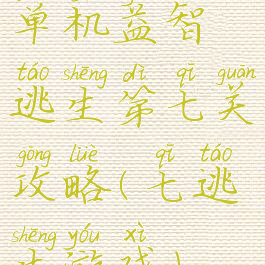 单机益智
táo shēng dì qī guān
逃生第七关
gōng lüè qī táo
攻略(七逃
shēng yóu xì
生游戏)